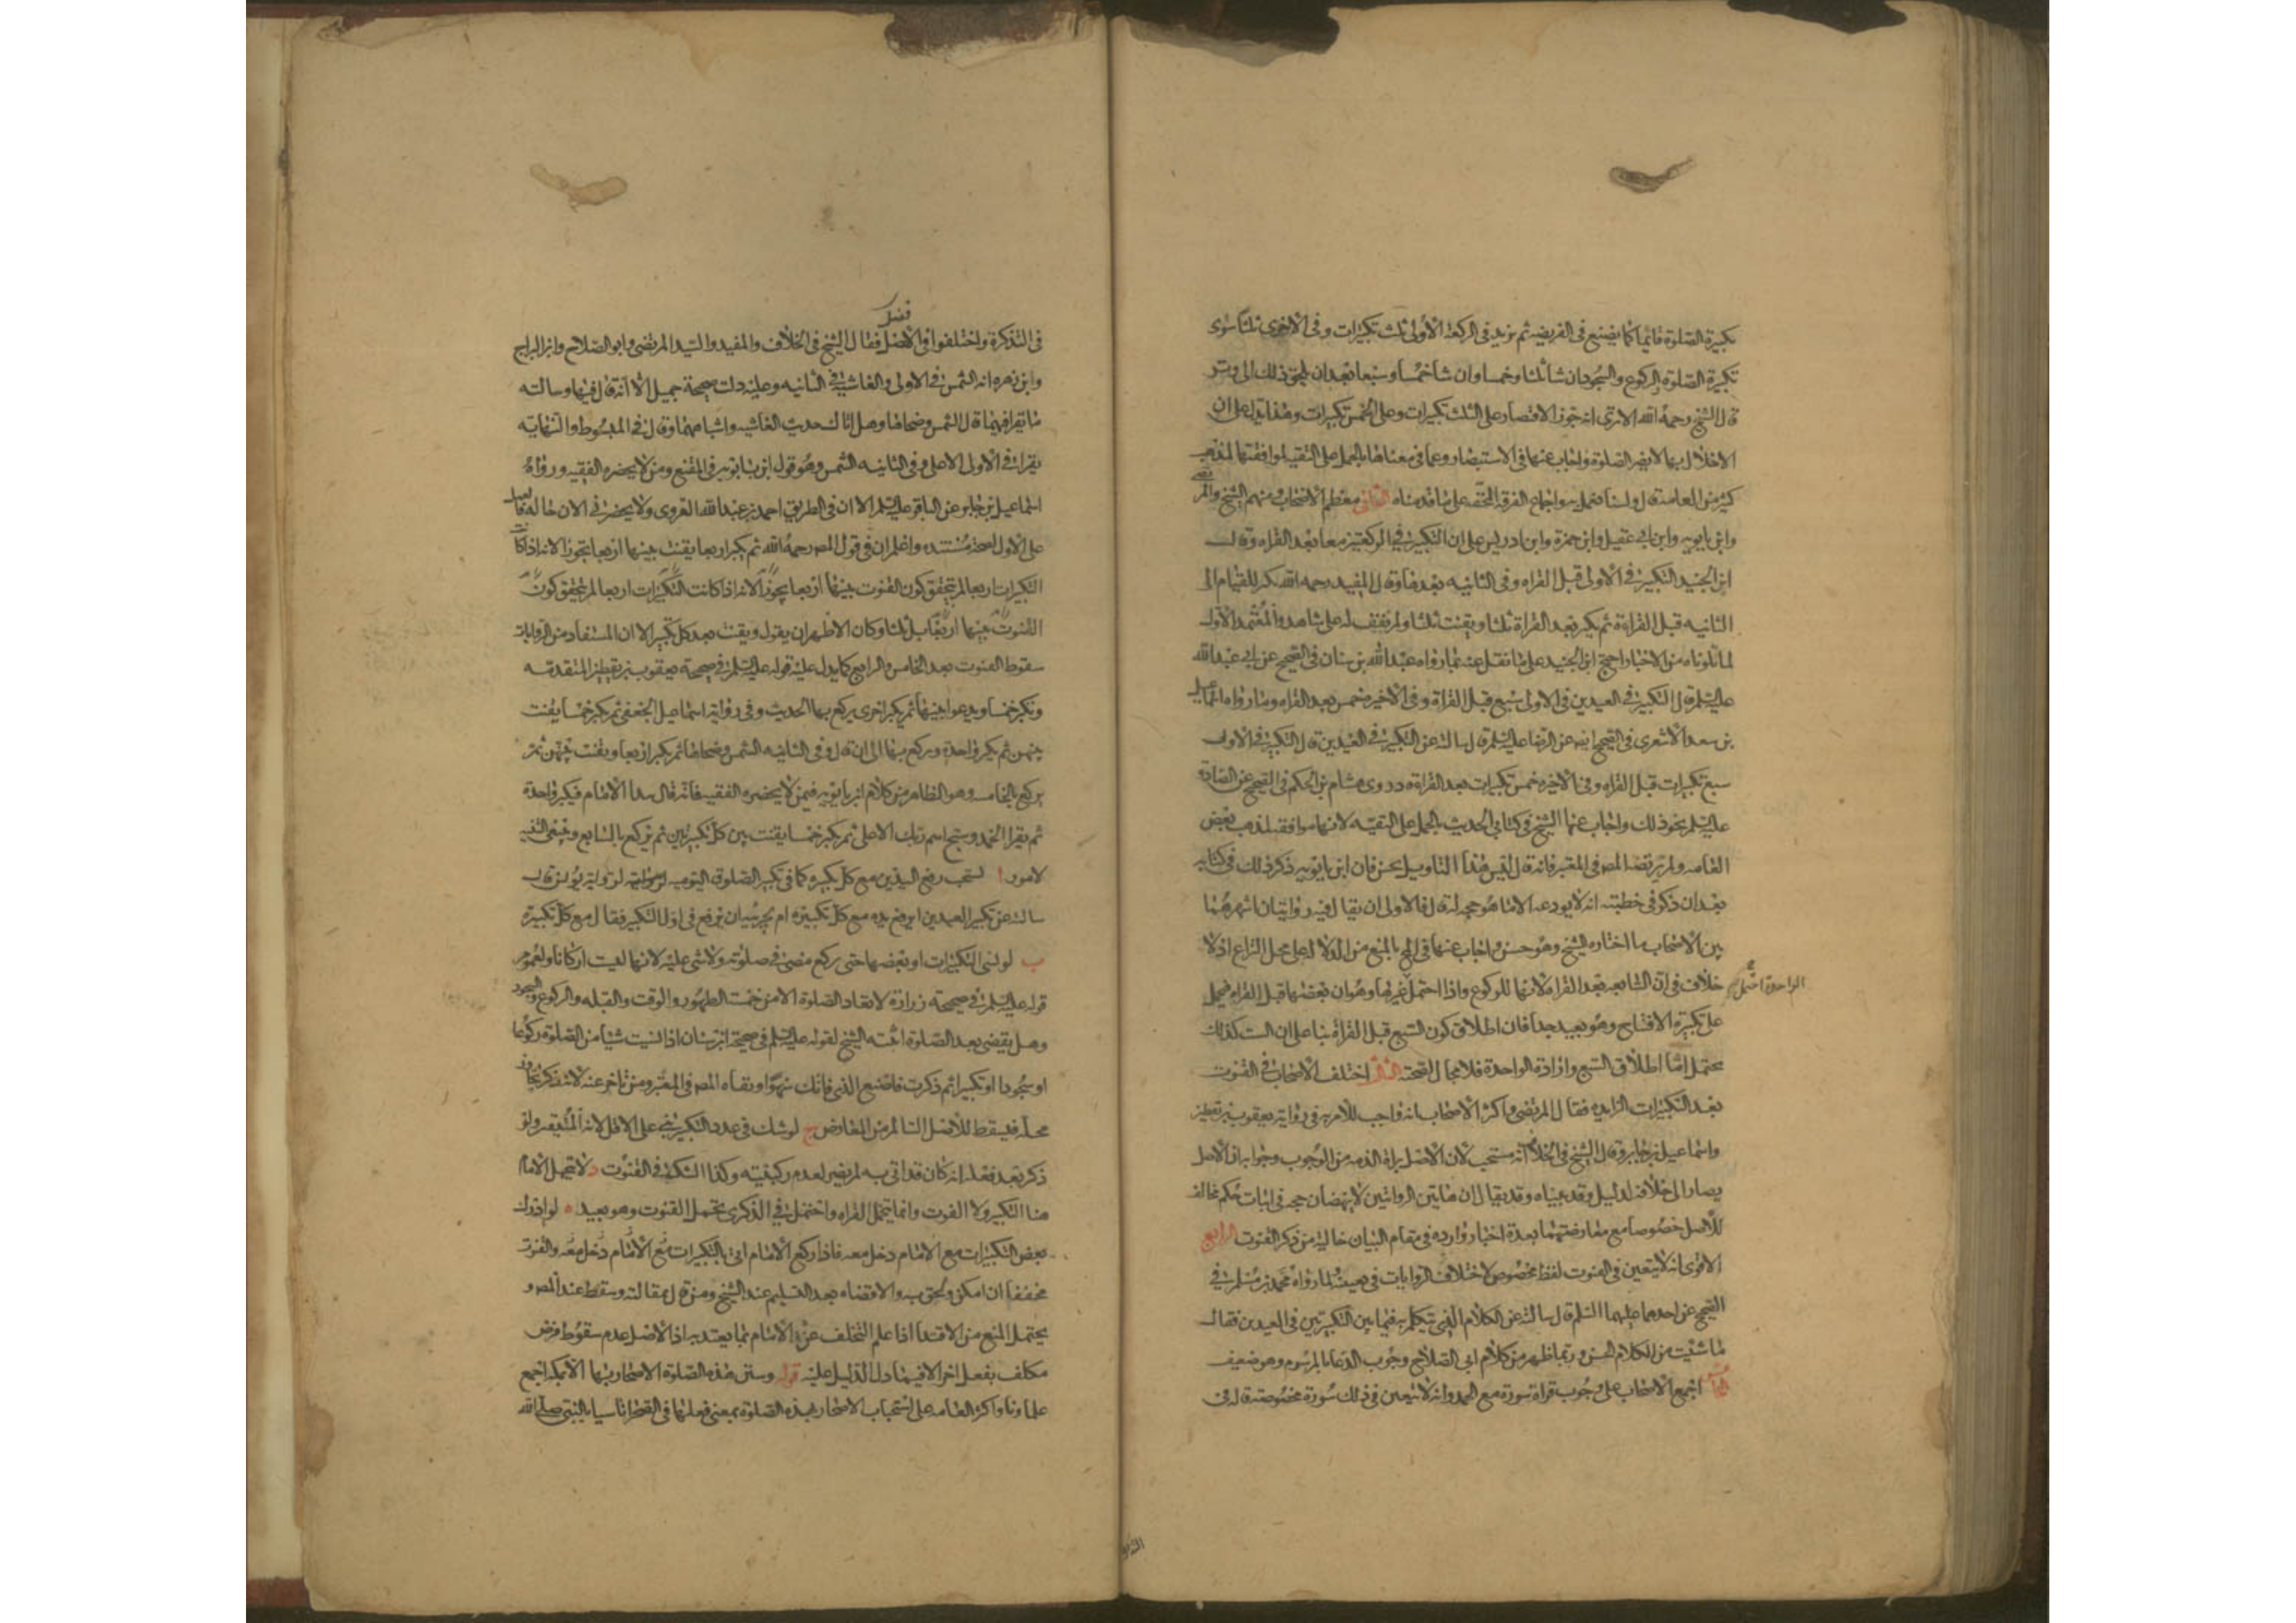 تكبيرة الصلوة قائما كما يصنع في الفريضه ثم يزيد في الركعة الاولى ثلث تكبيرات وفي الاخرى ثلثا سوى
تكبيرة الصلوة والركوع والسجود ان شا ثلثا وخمسا وان شا خمسا وسبعا بعد ان يلحق ذلك الى وتر
قال الشيخ رحمه الله الا ترى انه جوز الاقتصار على الثلث تكبيرات وعلى الخمس تكبيرات وهذا يدل على ان
الاخلال بها لا يضر الصلوة واجاب عنها في الاستبصار وعما في معناها بالحمل على التقيه لموافقتها لمذهب
كثير من العامه قال ولسنا نعمل به واجماع الفرقه المحقه على ما قدمناه الثاني معظم الاصحاب ومنهم الشيخ والمرتضى
وابن بابويه وابن ابي عقيل وابن حمزة وابن ادريس على ان التكبير في الركعتين معا بعد القراه وقال
ابن الجنيد التكبير في الاولى قبل القراه وفي الثانيه بعدها وقال المفيد رحمه الله يكبر للقيام الى
الثانيه قبل القراءة ثم يكبر بعد القراة ثلثا ويقنت ثلثا ولم نقف له على شاهد والمعتمد الاول
لما تلوناه من الاخبار احتج ابن الجنيد على ما نقل عنه بما رواه عبد الله بن سنان في الصحيح عن ابي عبد الله
عليه السلم قال التكبير في العيدين في الاولى سبع قبل القراة وفي الاخيرة خمس بعد القراه وما رواه اسماعيل
بن سعد الاشعرى في الصحيح ايضه عن الرضا عليه السلم قال سالته عن التكبير في العيدين قال التكبير في الاولى
سبع تكبيرات قبل القراه وفي الاخيره خمس تكبيرات بعد القراءة وروى هشام بن الحكم في الصحيح عن الصادق
عليه السلم نحو ذلك واجاب عنها الشيخ في كتابي الحديث بالحمل على التقيه لانها موافقه لمذهب بعض
العامه ولم يرتضه المصه في المعتبر فانه قال ليس هذا التاويل بحسن فان ابن بابويه ذكر ذلك في كتابه
بعد ان ذكر في خطبته انه لا يودعه الا ما هو حجه له قال فالاولى ان يقال فيه روايتان اشهرهما
بين الاصحاب ما اختاره الشيخ وهو حسن واجاب عنها في المخ بالمنع من الدلالة على محل النزاع اذ لا
خلاف في ان السابعه بعد القراه لانها للركوع واذا احتمل غيرها وهو ان بعضها قبل القراه فيحمل
على تكبيرة الافتتاح وهو بعيد جدا فان اطلاق كون السبع قبل القراة بنا على ان الست كذلك
يحتمل اما اطلاق السبع وارادة الواحدة فلا مجال لصحته الثالث اختلف الاصحاب في القنوت
بعد التكبيرات الزايده فقال المرتضى واكثر الاصحاب انه واجب للامر به في رواية يعقوب بن يقطين
واسماعيل بن جابر وقال الشيخ في الخلاف انه مستحب لان الاصل براة الذمه من الوجوب وجوابه ان الاصل
يصار الى خلافه لدليل وقد بيناه وقد يقال ان هاتين الروايتين لا ينهضان حجه في اثبات حكم مخالف
للاصل خصوصا مع معارضتهما بعدة اخبار وارده في مقام البيان خالية من ذكر القنوت الرابع
الاقوى انه لا يتعين في القنوت لفظ مخصوص لاختلاف الروايات في تعيينه لما رواه محمد بن مسلم في
الصحيح عن احدهما عليهما السلم قال سالته عن الكلام الذي يتكلم به فيما بين التكبيرتين في العيدين فقال
ما شئت من الكلام الحسن وربما ظهر من كلام ابي الصلاح وجوب الدعا بالمرسوم وهو ضعيف
الخامس اجمع الاصحاب على وجوب قراة سورة مع الحمد وانه لا يتعين في ذلك سورة مخصوصة قاله في
الواحدة اضل
في التذكرة واختلفوا في الافضل فقال الشيخ في الخلاف والمفيد والسيد المرتضى وابو الصلاح وابن البراج
وابن زهره انه الشمس في الاولى والغاشيه في الثانيه وعليه دلت صحيحة جميل الا انه قال فيها وسالته
ما يقرا فيهما قال الشمس وضحاها وهل اتاك حديث الغاشيه واشباههما وقال في المبسوط والنهايه
يقرا في الاولى الاعلى وفي الثانيه الشمس وهو قول ابن بابويه في المقنع ومن لا يحضره الفقيه ورواه
اسماعيل بن جابر عن الباقر عليه السلم الا ان في الطريق احمد بن عبد الله القروى ولا يحضرني الان حاله فالعمل
على الاول لصحة مستنده واعلم ان في قول المصه رحمه الله ثم يكبر اربعا يقنت بينها اربعا تجوز لانه اذا كانت
التكبيرات اربعا لم يتحقق كون القنوت بينها اربعا تجوز لانه اذا كانت التكبيرات اربعا لم يتحقق كون
القنوت بينها اربعا بل ثلثا وكان الاظهر ان يقول ويقنت بعد كل تكبير الا ان المستفاد من الروايات
سقوط القنوت بعد الخامس والرابع كما يدل عليه قوله عليه السلم في صحيحة يعقوب بن يقطين المتقدمه
وتكبر خمسا ويدعوا بينها ثم يكبر اخرى يركع بها الحديث وفي رواية اسماعيل الجعفي ثم يكبر خمسا يقنت
بينهن ثم يكبر واحدة ويركع بها الى ان قال وفي الثانيه الشمس وضحاها ثم يكبر اربعا ويقنت بينهن ثم
يركع بالخامسه وهو الظاهر من كلام ابن بابويه فيمن لا يحضره الفقيه فانه قال يبدا الامام فيكبر واحدة
ثم يقرا الحمد وسبح اسم ربك الاعلى ثم يكبر خمسا يقنت بين كل تكبيرتين ثم يركع بالسابعة
لامور ا يستحب رفع اليدين مع كل تكبيره كما في تكبير الصلوة اليوميه لرواية يونس قال
سالته عن تكبير العيدين ايرفع يده مع كل تكبيرة ام يجزيه ان يرفع في اول التكبير فقال مع كل تكبيرة
ب لو نسى التكبيرات او بعضها حتى ركع مضى في صلوته ولا شي عليه لانها ليست اركانا ولعموم
قوله عليه السلم في صحيحة زرارة لا تعاد الصلوة الا من خمسة الطهور والوقت والقبله والركوع والسجود
وهل يقضى بعد الصلوة اثبته الشيخ لقوله عليه السلم في صحيحة ابن سنان اذا نسيت شيا من الصلوة ركوعا
او سجودا او تكبيرا ثم ذكرت فاصنع الذي فاتك سهوا ونفاه المصه في المعتبر ومن تاخر عنه لانه ذكر تجاوز
محله فيسقط للاصل السالم من المعارض ج لو شك في عدد التكبير بنى على الاقل لانه المتيقن ولو
ذكر بعد فعله انه كان قد اتى به لم يضر لعدم ركنيته وكذا الشك في القنوت د لا يتحمل الامام
هنا التكبير ولا القنوت وانما يتحمل القراه واحتمل في الذكرى تحمل القنوت وهو بعيد ه لو ادرك
بعض التكبيرات مع الامام دخل معه فاذا ركع الامام اتى بالتكبيرات مع الامام دخل معه والقنوت
مخففا ان امكن ولحق به والا قضاه بعد التسليم عند الشيخ ومن قال بمقالته وسقط عند المصه و
يحتمل المنع من الاقتدا اذا علم التخلف عن الامام بما يعتد به اذ الاصل عدم سقوط فرض
مكلف بفعل اخر الا فيما دل الدليل عليه قوله وسنن هذه الصلوة الاصحار بها الا بمكه اجمع
علماونا واكثر العامه على استحباب الاصحار بهذه الصلوة بمعنى فعلها في الصحرا تاسيا بالنبي صلى الله